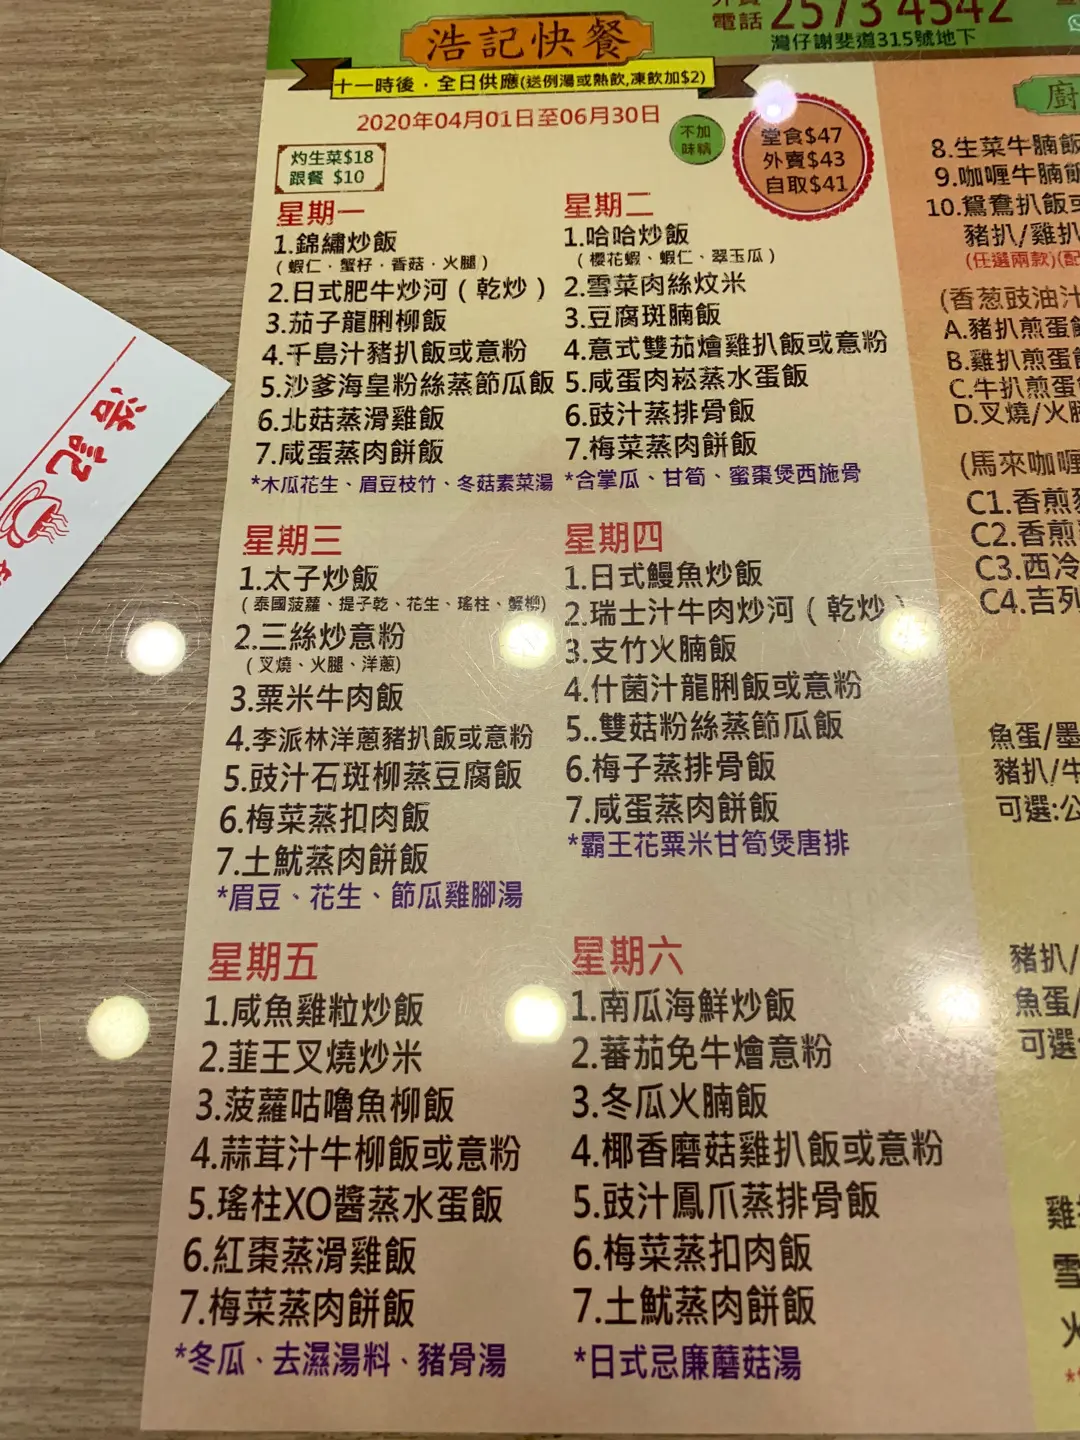 電話 2573 4542
灣仔謝斐道315號地下
浩記快餐
十一時後．全日供應(送例湯或熱飲,凍飲加$2)
2020年04月01日至06月30日
不加
味精
堂食$47
外賣$43
自取$41
灼生菜$18
跟餐 $10
星期一
1.錦繡炒飯
(蝦仁．蟹籽．香菇．火腿)
2.日式肥牛炒河(乾炒)
3.茄子龍脷柳飯
4.千島汁豬扒飯或意粉
5.沙爹海皇粉絲蒸節瓜飯
6.北菇蒸滑雞飯
7.咸蛋蒸肉餅飯
*木瓜花生、眉豆枝竹、冬菇素菜湯
星期二
1.哈哈炒飯
(櫻花蝦、蝦仁、翠玉瓜)
2.雪菜肉絲炆米
3.豆腐斑腩飯
4.意式雙茄燴雞扒飯或意粉
5.咸蛋肉崧蒸水蛋飯
6.豉汁蒸排骨飯
7.梅菜蒸肉餅飯
*合掌瓜、甘筍、蜜棗煲西施骨
星期三
1.太子炒飯
(泰國菠蘿、提子乾、花生、瑤柱、蟹柳)
2.三絲炒意粉
(叉燒、火腿、洋蔥)
3.粟米牛肉飯
4.李派林洋蔥豬扒飯或意粉
5.豉汁石斑柳蒸豆腐飯
6.梅菜蒸扣肉飯
7.土魷蒸肉餅飯
*眉豆、花生、節瓜雞腳湯
星期四
1.日式鰻魚炒飯
2.瑞士汁牛肉炒河(乾炒)
3.支竹火腩飯
4.什菌汁龍脷飯或意粉
5..雙菇粉絲蒸節瓜飯
6.梅子蒸排骨飯
7.咸蛋蒸肉餅飯
*霸王花粟米甘筍煲唐排
星期五
1.咸魚雞粒炒飯
2.韮王叉燒炒米
3.菠蘿咕嚕魚柳飯
4.蒜茸汁牛柳飯或意粉
5.瑤柱XO醬蒸水蛋飯
6.紅棗蒸滑雞飯
7.梅菜蒸肉餅飯
*冬瓜、去濕湯料、豬骨湯
星期六
1.南瓜海鮮炒飯
2.蕃茄免牛燴意粉
3.冬瓜火腩飯
4.椰香磨菇雞扒飯或意粉
5.豉汁鳳爪蒸排骨飯
6.梅菜蒸扣肉飯
7.土魷蒸肉餅飯
*日式忌廉蘑菇湯
廚
8.生菜牛腩飯
9.咖喱牛腩飯
10.鴛鴦扒飯或
豬扒/雞扒
(任選兩款)(配
(香葱豉油汁
A.豬扒煎蛋飯
B.雞扒煎蛋
C.牛扒煎蛋
D.叉燒/火腿
(馬來咖喱
C1.香煎
C2.香煎
C3.西冷
C4.吉列
魚蛋/墨
豬扒/牛
可選:公
豬扒/
魚蛋/
可選
雞
雪
火
浩記